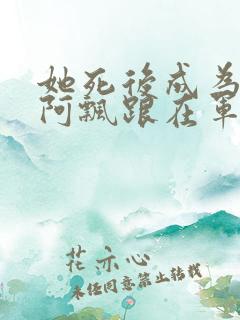 她死後成為
阿飄跟在軍
花亦心
未经同意禁止转载